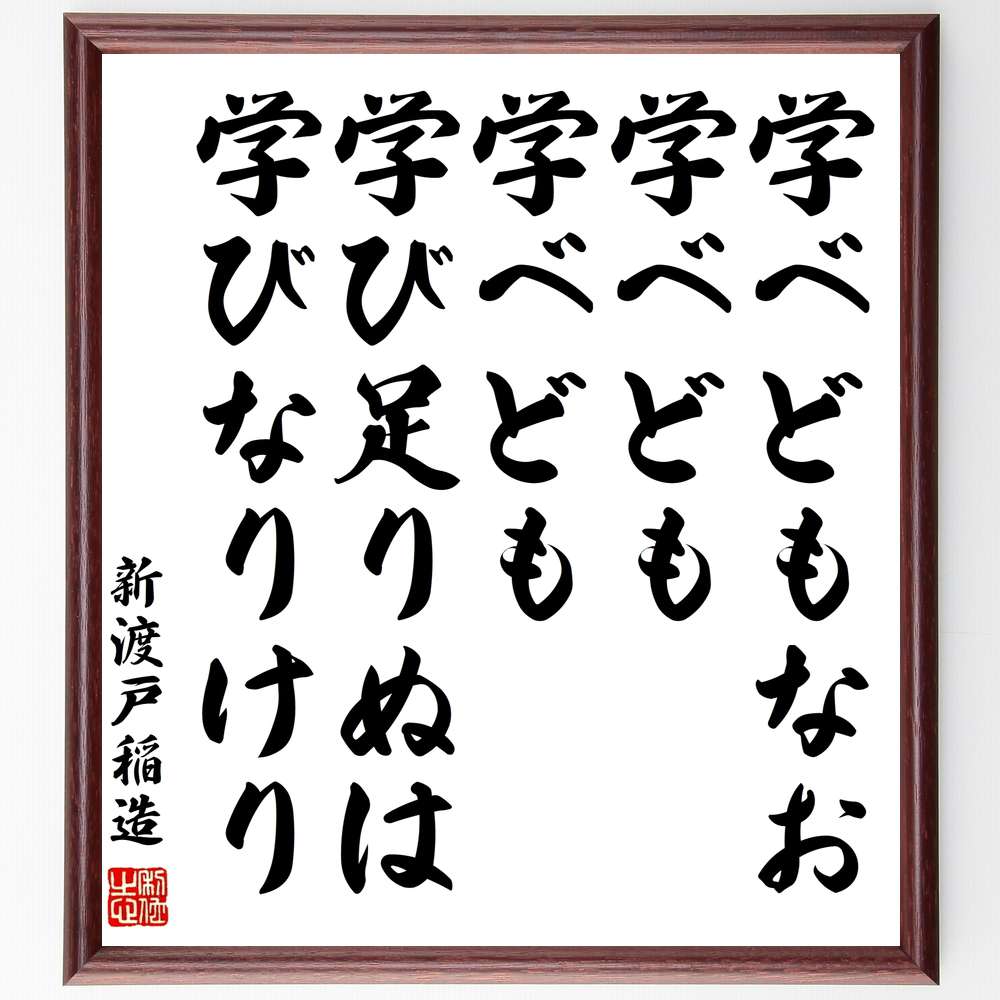 学べどもなお
学べども
学べども
学び足りぬは
学びなりけり
新渡戸稲造